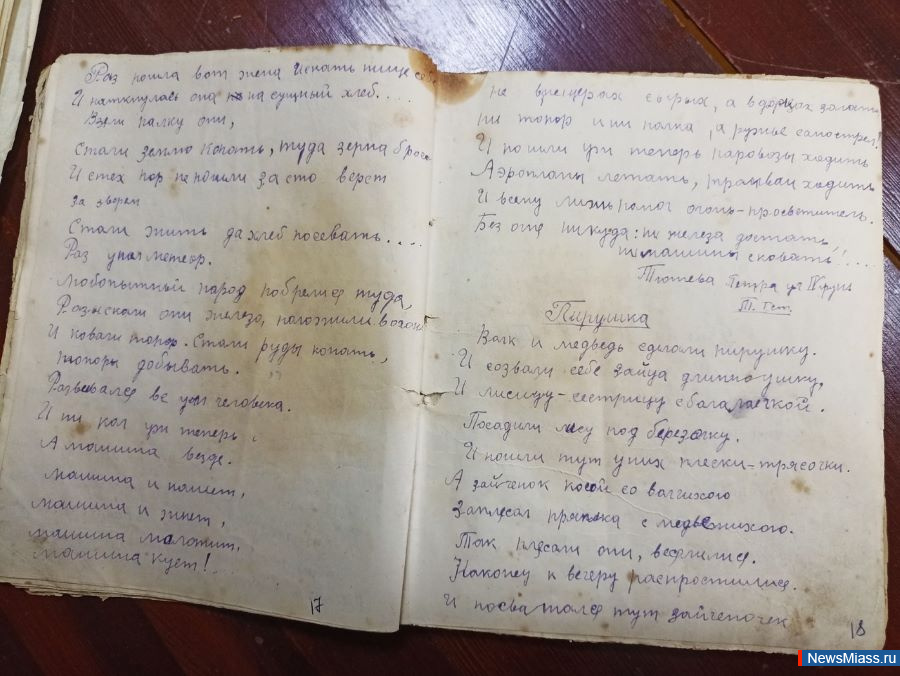 Раз пошла вот жена искать пищи себе
И наткнулась она на сущный хлеб....
Взяли палку они,
Стали землю копать, туда зерна броса
И с тех пор не пошли за сто верст
за зверем
Стали жить да хлеб посевать....
Раз упал метеор.
Любопытный народ побрелся туда,
Разыскали они железо, положили в огонь
И ковали топор. Стали руды копать,
топоры добывать.
Развевался ве ум человека.
И ни кол ури теперь
А машина везде.
Машина и пашет,
Машина и жнет,
Машина молотит,
Машина кует!...
17
не в пещерах сырых, а в дворцах золоты
ни топор и ни палка, а ружье самострел!
И пошли ури теперь паровозы ходить
Аэропланы летать, трамваи ходить
И всему лишь помог огонь-просветитель.
Без огня никуда: ни железа достать,
ни машины сковать!....
Тютева Петра уч IV групп
Т. Гет.
Пирушка
Волк и медведь сделали пирушку.
И созвали себе зайца длинноушку,
И лисицу-сестрицу с балалаечкой.
Посадили лису под березочку.
И пошли тут у них плески-трясочки.
А зайченок косой со волчихою
Заплесал прямка с медвежихою.
Так плесали они, веселились.
Наконец к вечеру распростились.
И посватался тут зайчепочек
18
NewsMiass.ru